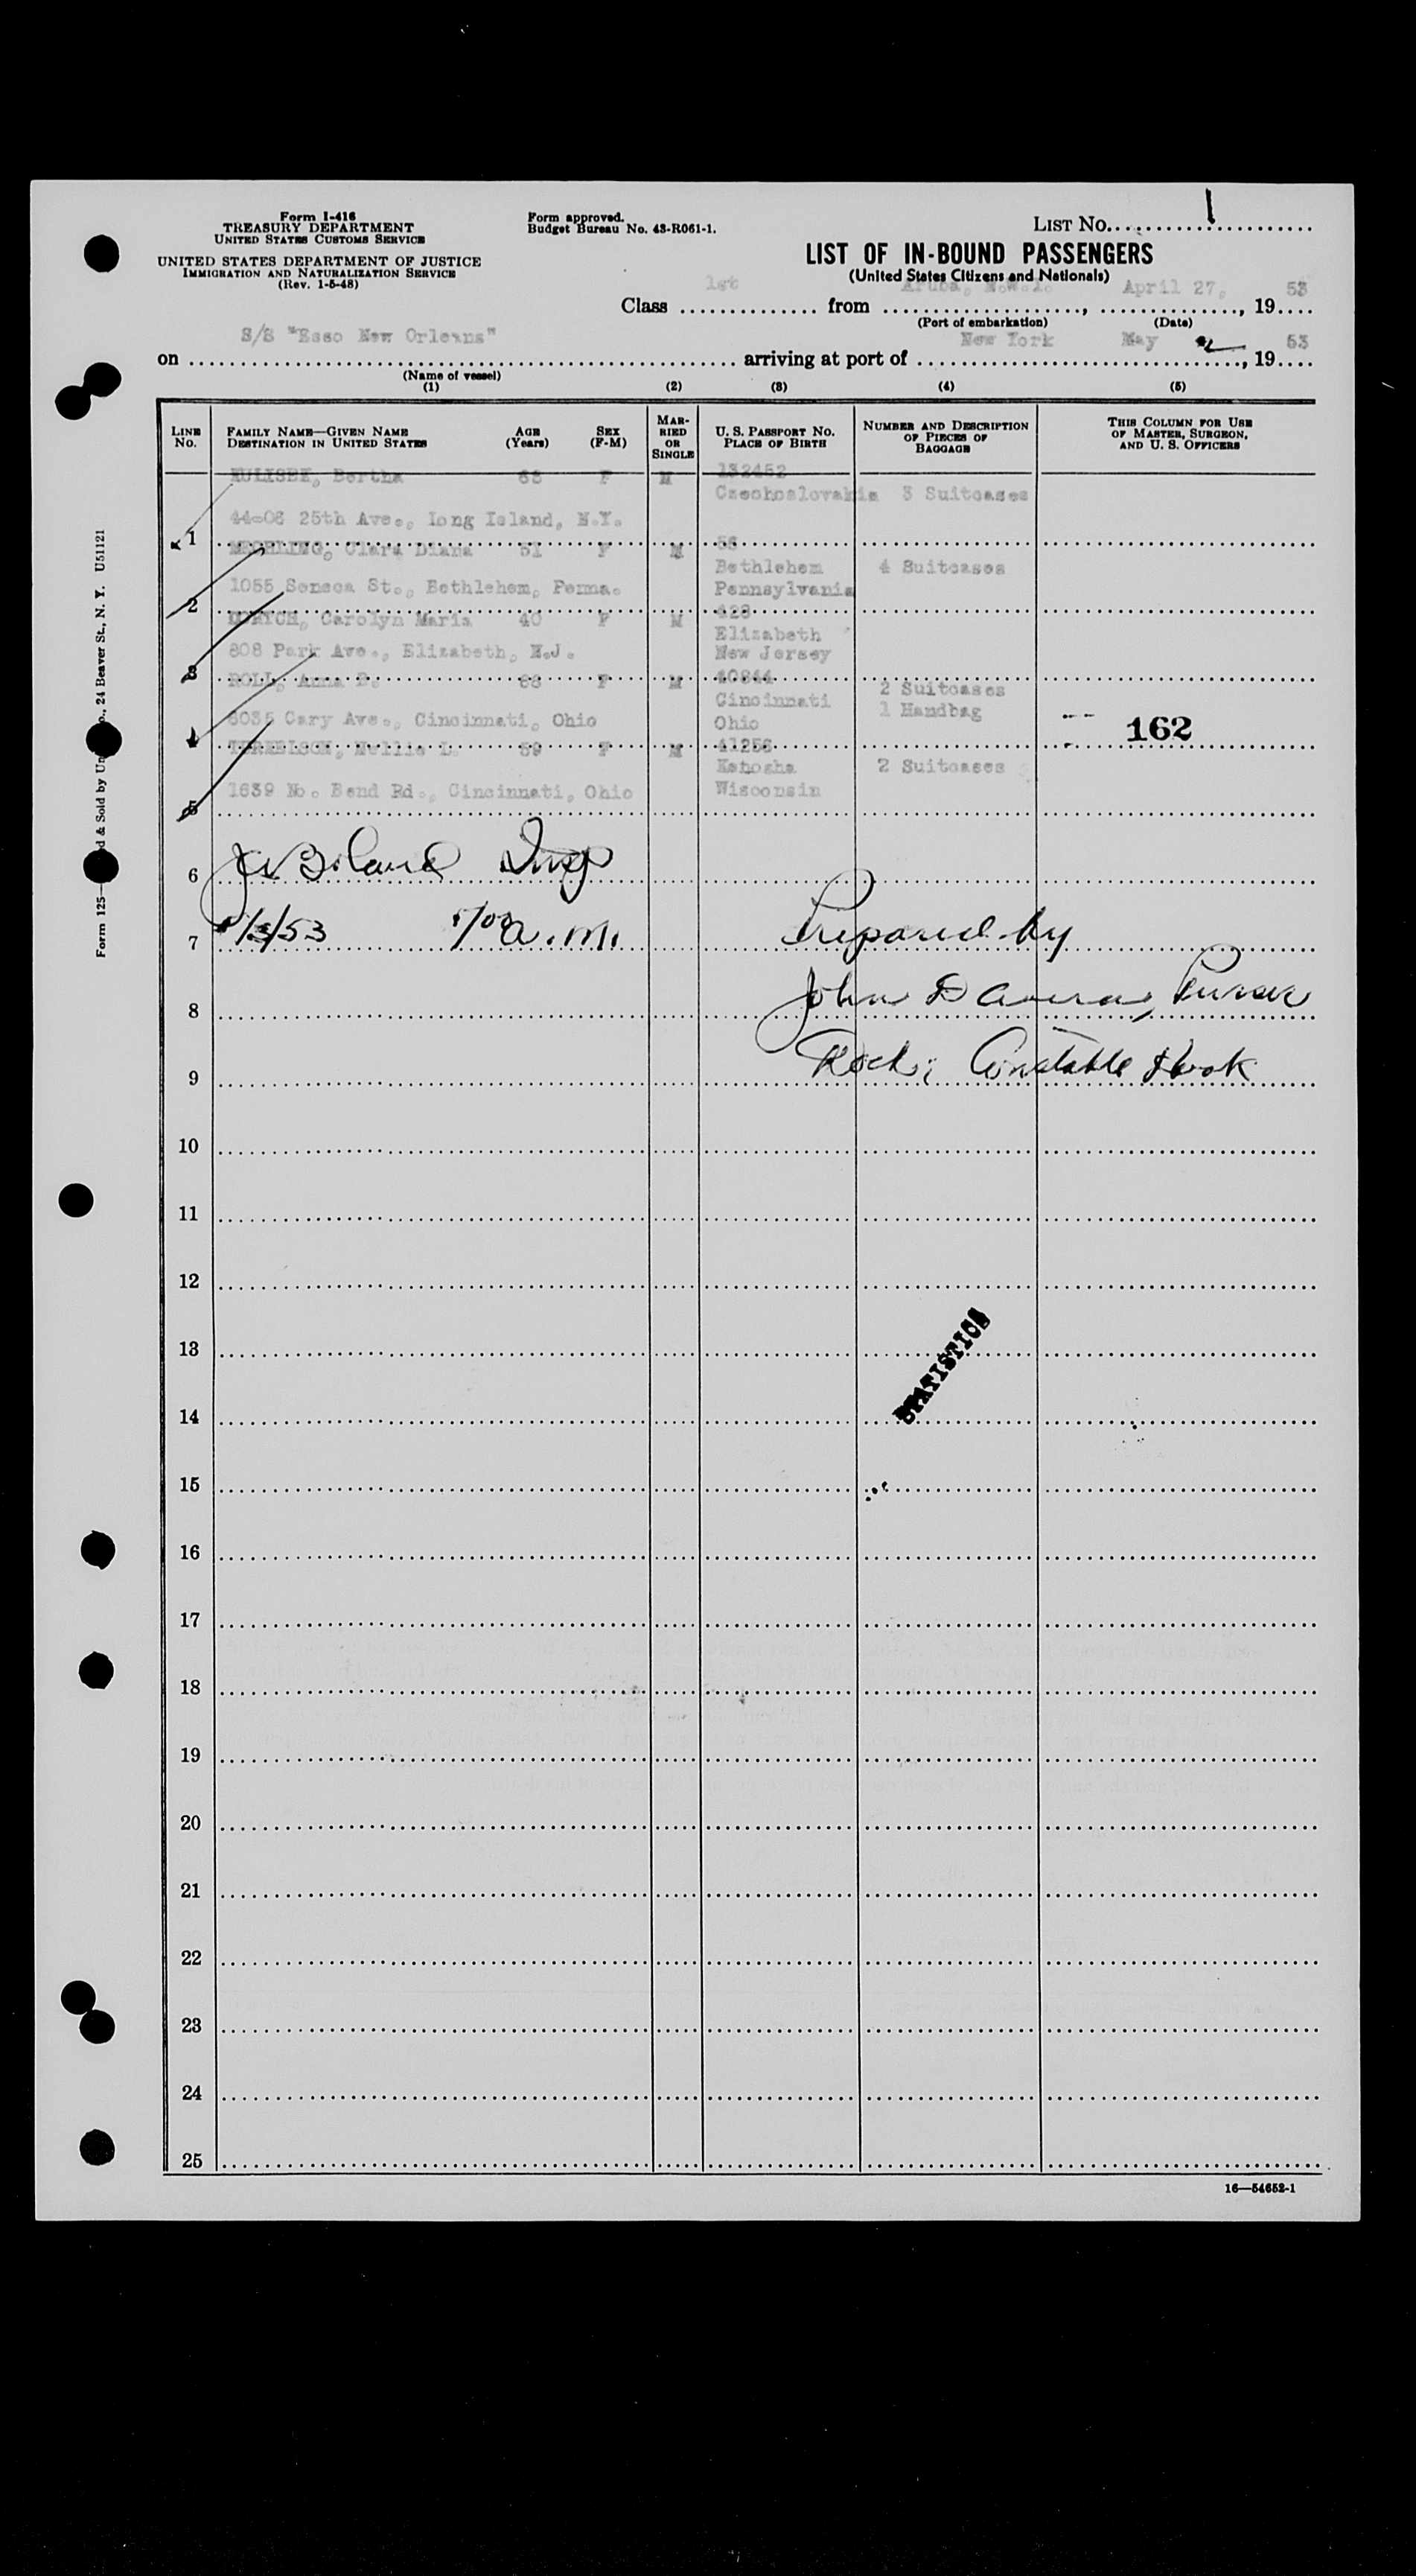 Form I-416
TREASURY DEPARTMENT
UNITED STATES CUSTOMS SERVICE
UNITED STATES DEPARTMENT OF JUSTICE
IMMIGRATION AND NATURALIZATION SERVICE
(Rev. 1-5-48)
Form approved.
Budget Bureau No. 43-R061-1.
LIST No. 1
LIST OF IN-BOUND PASSENGERS
(United States Citizens and Nationals)
Class 1st from Aruba, N.W.I., April 27, 1953
(Port of embarkation) (Date)
on S/S "Esso New Orleans" arriving at port of New York May 2, 1953
(Name of vessel)
(1) (2) (3) (4) (5)
LINE No. FAMILY NAME—GIVEN NAME DESTINATION IN UNITED STATES AGE (Years) SEX (F-M) MARRIED OR SINGLE U. S. PASSPORT No. PLACE OF BIRTH NUMBER AND DESCRIPTION OF PIECES OF BAGGAGE THIS COLUMN FOR USE OF MASTER, SURGEON, AND U. S. OFFICERS
Bertha F M 132452
Czechoslovakia 3 Suitcases
44-08 25th Ave., Long Island, N.Y.
1 MECHLING, Clara Diana 51 F M 56
Bethlehem 4 Suitcases
1055 Seneca St., Bethlehem, Penna. Pennsylvania
2 Carolyn Marie 40 F M 428
Elizabeth
808 Park Ave., Elizabeth, N.J. New Jersey
3 ROLL, Anna F M 40844
Cincinnati 2 Suitcases
6035 Cary Ave., Cincinnati, Ohio Ohio 1 Handbag
4 Nellie L. 59 F M 41256 162
Kenosha 2 Suitcases
1639 No. Bend Rd., Cincinnati, Ohio Wisconsin
5
6 Boland Insp
7 5/2/53 a.m. Prepared by
8 John D Purser
9 Constable Hook
10
11
12
13
STATISTICS
14
15
16
17
18
19
20
21
22
23
24
25
16—54652-1
Form 125— d & Sold by Un o., 24 Beaver St., N. Y. U51121